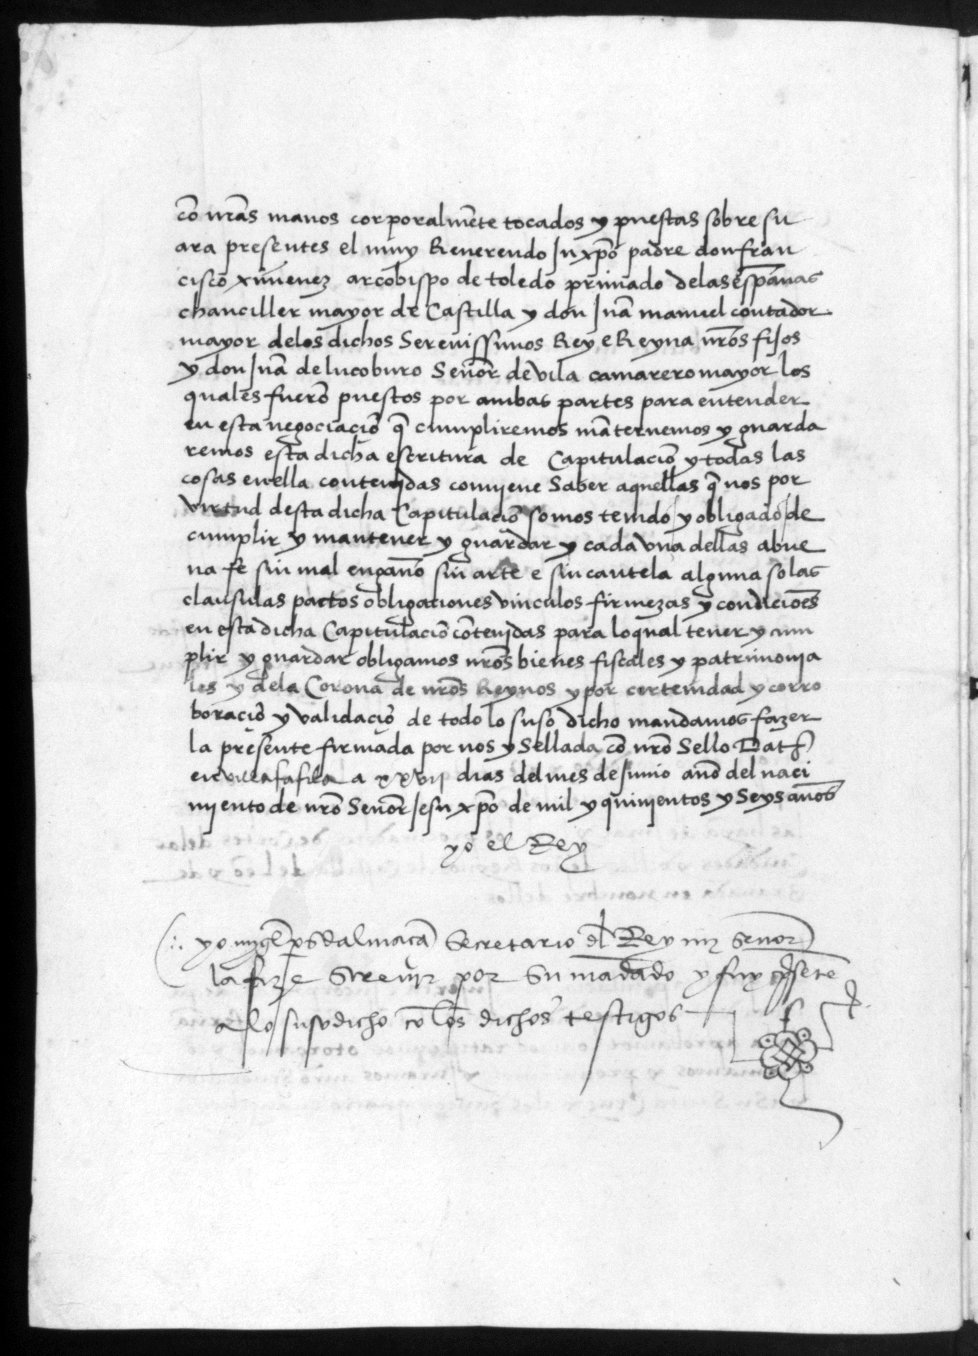 cõ nr̃as manos corporalmẽte tocados y puestas sobre su
ara presentes el muy Reuerendo Jn xp̃o padre don fran
cisco ximenez arcobispo de toledo primado delas espãnas
chanciller mayor de Castilla y don Juã manuel contador
mayor delos dichos Serenissimos Rey e Reyna nr̃os fijos
y don Juã de lucoburo Señor de vila camarero mayor los
quales fuerõ puestos por ambas partes para entender
en esta negociaciõ q̃ cumpliremos mãternemos y guarda
remos esta dicha escritura de Capitulaciõ y todas las
cosas enella contenjdas conujene Saber aquellas q̃ nos por
virtud desta dicha Capitulaciõ somos tenido y obligado de
cumplir y mantener y guardar y cada vna dellas abue
na fe sin mal engaño sin arte e sin cautela alguna so las
clausulas pactos obligationes vinculos firmezas y condiciões
en esta dicha Capitulaciõ cõtenjdas para lo qual tener y cum
plir y guardar obligamos nr̃os bienes fiscales y patrimonia
les y dela Corona de nr̃os Reynos y por certenidad y corro
boraciõ y validaciõ de todo lo suso dicho mandamos fazer
la presente firmada por nos y Sellada cõ nr̃o Sello Dat̃
en villafafila a xxvij dias del mes de junio año del naci
miento de nr̃o Señor Jesu xp̃o de mil y quinientos y Seys años
yo el Rey
yo migl̃ ps dalmacã Secretario dl̃ Rey mj señor
la fize screujr por su mãdado y fuy p̃sẽte
a lo susodicho cõ los dichos testigos